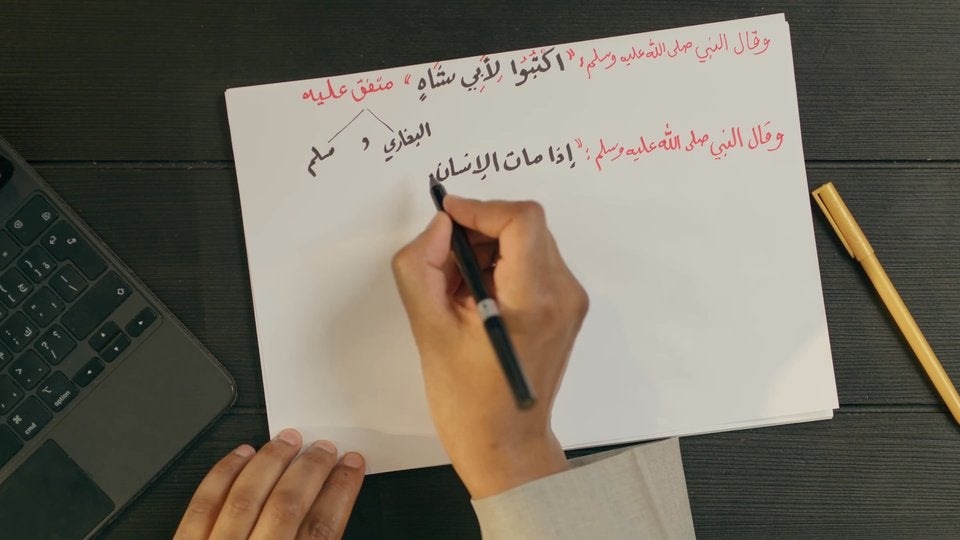 وقال النبي صلى الله عليه وسلم: "اكْتُبُوا لِأَبِي شَاهٍ" متفق عليه
البخاري و مسلم
وقال النبي صلى الله عليه وسلم: "إذا مات الإنسان
option
cmd